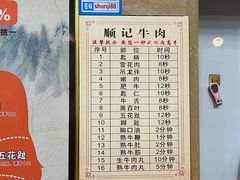 %
挑一
五花趾
shunji88
顺记牛肉
温馨提示
序号 部位 时间
1 匙柄 10秒
2 雪花肉 8秒
3 吊龙伴 10秒
4 嫩肉 8秒
5 肥牛 10秒
6 匙仁 10秒
7 牛舌 10秒
8 黑百叶 10秒
9 五花趾 12秒
10 脚趾 12秒
11 胸口油 3分钟
12 熟牛肚 1分钟
13 熟牛筋 1分钟
14 熟牛腩 1分钟
15 生牛肉丸 5分钟
16 熟牛肉丸 2分钟